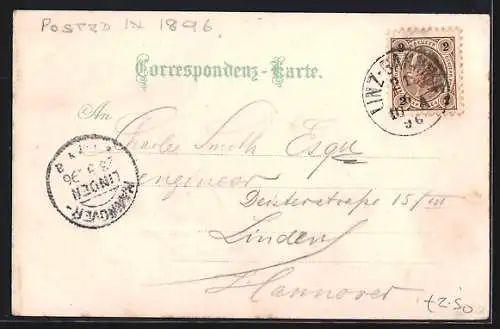 POSTED IN 1896.
2 2
LINZ-
96
Correspondenz-Karte.
An
Charles Smith Esqu
engineer
Deisterstrasse 15/III
Linden
Hannover
HANNOVER-
LINDEN
96
£2.50